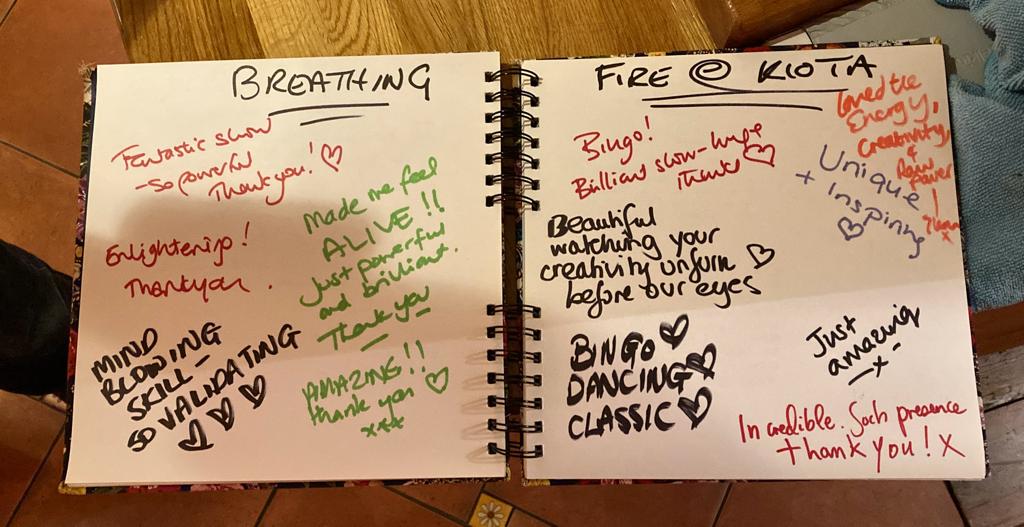 BREATHING
Fantastic show
- so powerful
Thank you!
Enlightening!
Thank you.
Made me feel
ALIVE!!
Just powerful
and brilliant.
Thank you
MIND
BLOWING
SKILL -
SO VALIDATING
AMAZING!!
thank you
xxx
FIRE @ KIOTA
Bingo!
Brilliant show - huge
Thanks
Loved the
Energy,
Creativity,
& Raw
Power
!
x
Unique
+ Inspiring
Beautiful
watching your
creativity unfurn
before our eyes
BINGO
DANCING
CLASSIC
Just
amazing
-x-
Incredible. Such presence
+ thank you! X